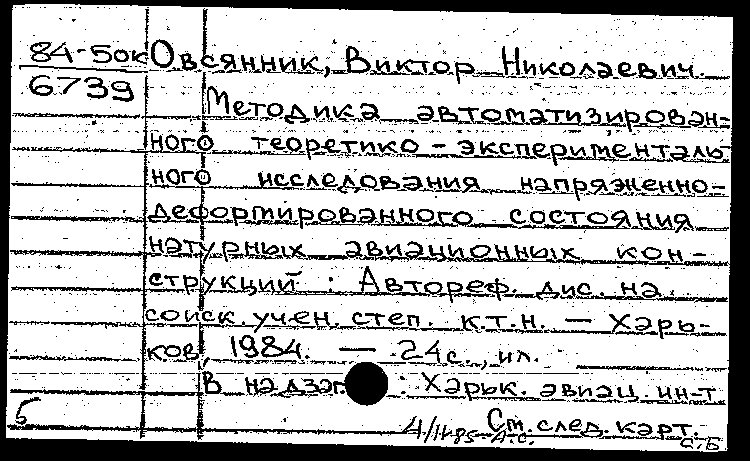 84-50к Овсянник, Виктор Николаевич.
6739
Методика автоматизирован-
ного теоретико-эксперименталь
ного исследования напряженно-
деформированного состояния
натурных авиационных кон-
струкций : Автореф. дис. на
соиск. учен. степ. к.т.н. — Харь-
ков, 1984. — 24с., ил.
В надзаг : Харьк. авиац. ин-т
5
См. след. карт.
С.Б